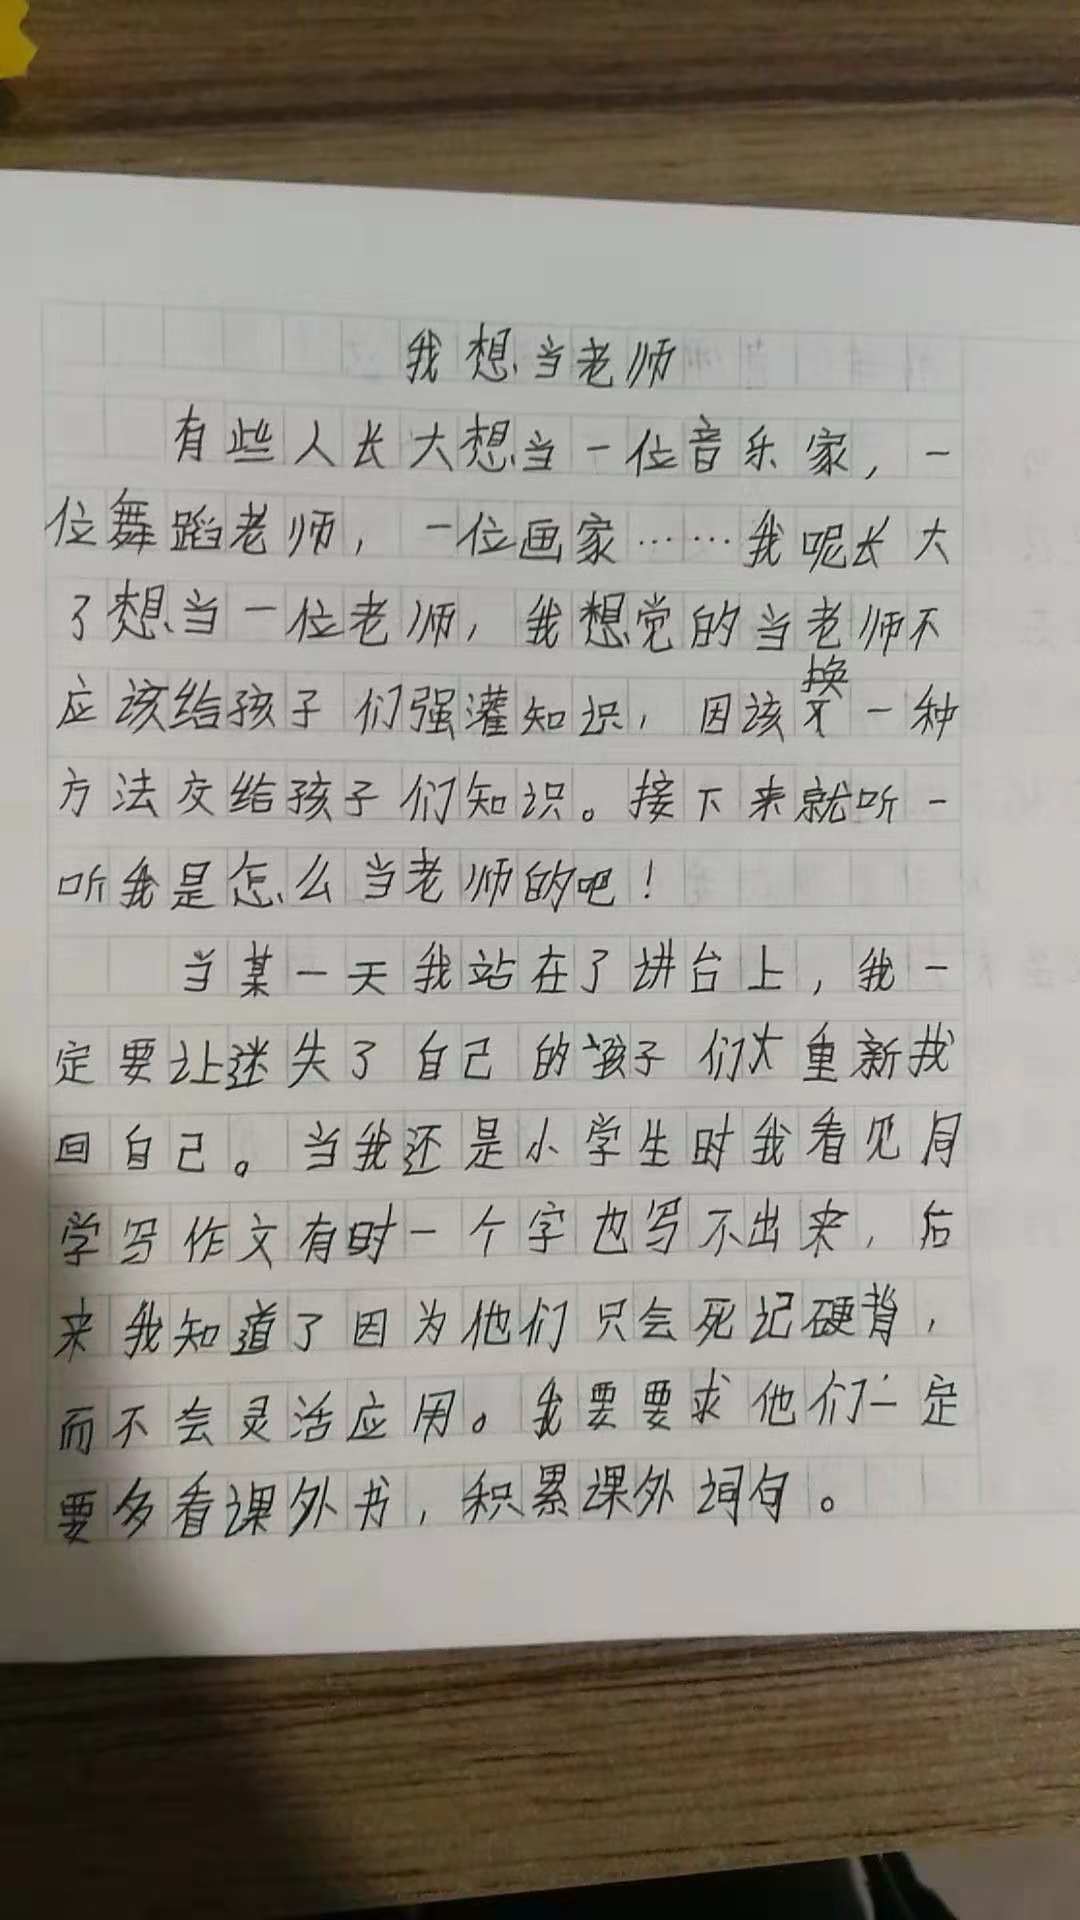 我想当老师
有些人长大想当一位音乐家，一
位舞蹈老师，一位画家……我呢长大
了想当一位老师，我想党的当老师不
应该给孩子们强灌知识，因该换一种
方法交给孩子们知识。接下来就听一
听我是怎么当老师的吧！
当某一天我站在了讲台上，我一
定要让迷失了自己的孩子们大重新我
回自己。当我还是小学生时我看见同
学写作文有时一个字也写不出来，后
来我知道了因为他们只会死记硬背，
而不会灵活应用。我要要求他们一定
要多看课外书，积累课外词句。